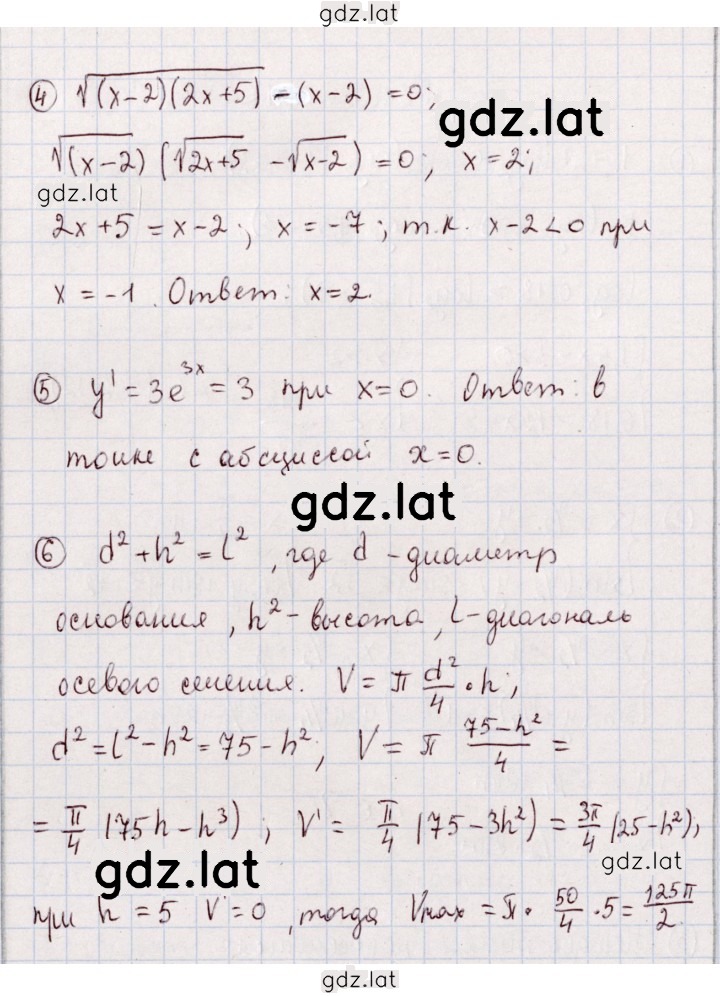 gdz.lat
④ √((x-2)(2x+5)) - (x-2) = 0;
gdz.lat
√(x-2) (√2x+5 - √x-2) = 0; x = 2;
gdz.lat
2x + 5 = x - 2; x = -7; т.к. x-2<0 при
x = -1. Ответ: x=2.
⑤ y' = 3e^3x = 3 при x=0. Ответ: в
точке с абсциссой x=0.
gdz.lat
⑥ d² + h² = l², где d - диаметр
основания, h² - высота, l - диагональ
осевого сечения. V = π d²/4 · h;
d² = l² - h² = 75 - h²; V = π (75-h²)/4 =
= π/4 (75h - h³); V' = π/4 (75-3h²) = 3π/4 (25-h²);
gdz.lat
gdz.lat
при h = 5 V'=0, тогда Vmax = π · 50/4 · 5 = 125π/2
gdz.lat